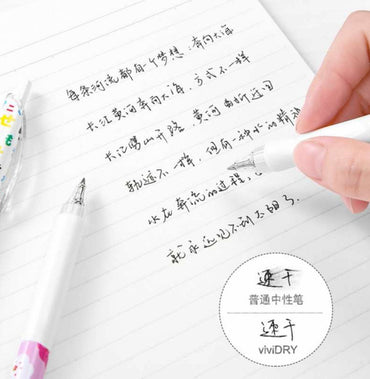 每条河流都有一个梦想:奔向大海
长江黄河奔向大海,方式不一样
长江劈山开路,黄河曲折迂回
轨迹不一样,但有一种水的精神
水在奔流的过程,
就永远见不到太阳了.
速干
普通中性笔
速干
viviDRY